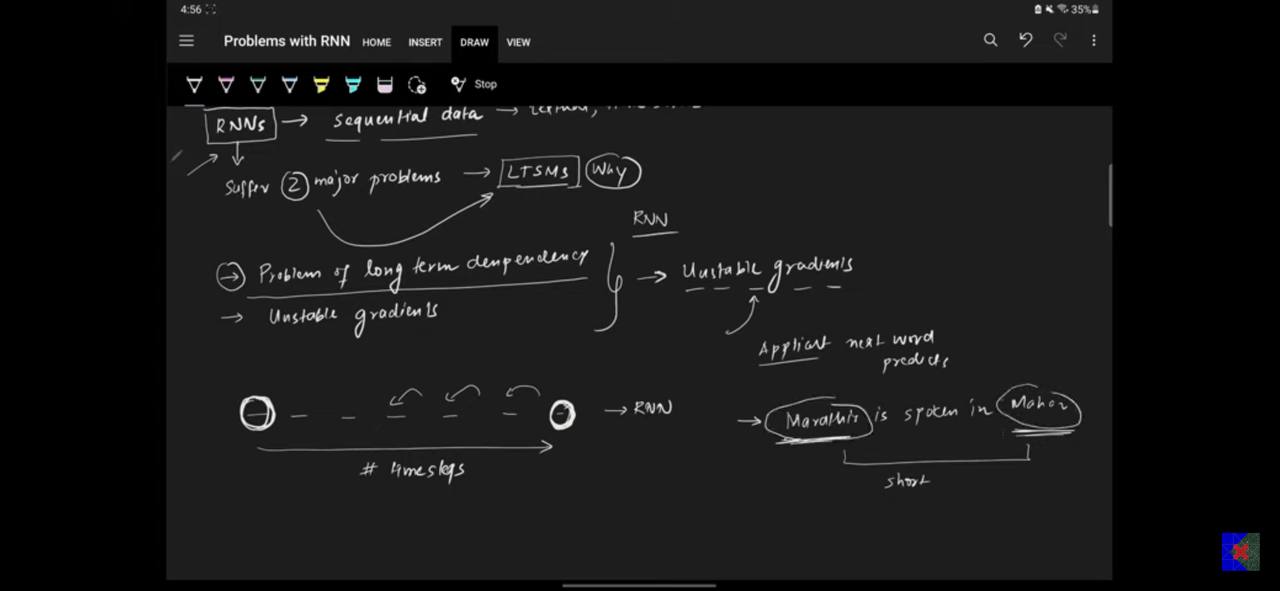 4:56
35%
Problems with RNN HOME INSERT DRAW VIEW
Stop
RNNs → sequential data →
suffer 2 major problems → LTSMs Way
RNN
→ Problem of long term denpendency → Unstable gradients
→ Unstable gradients
Appliast next word
predicts
→ RNN → Marathi is spoken in Mahar
# timesteps
short